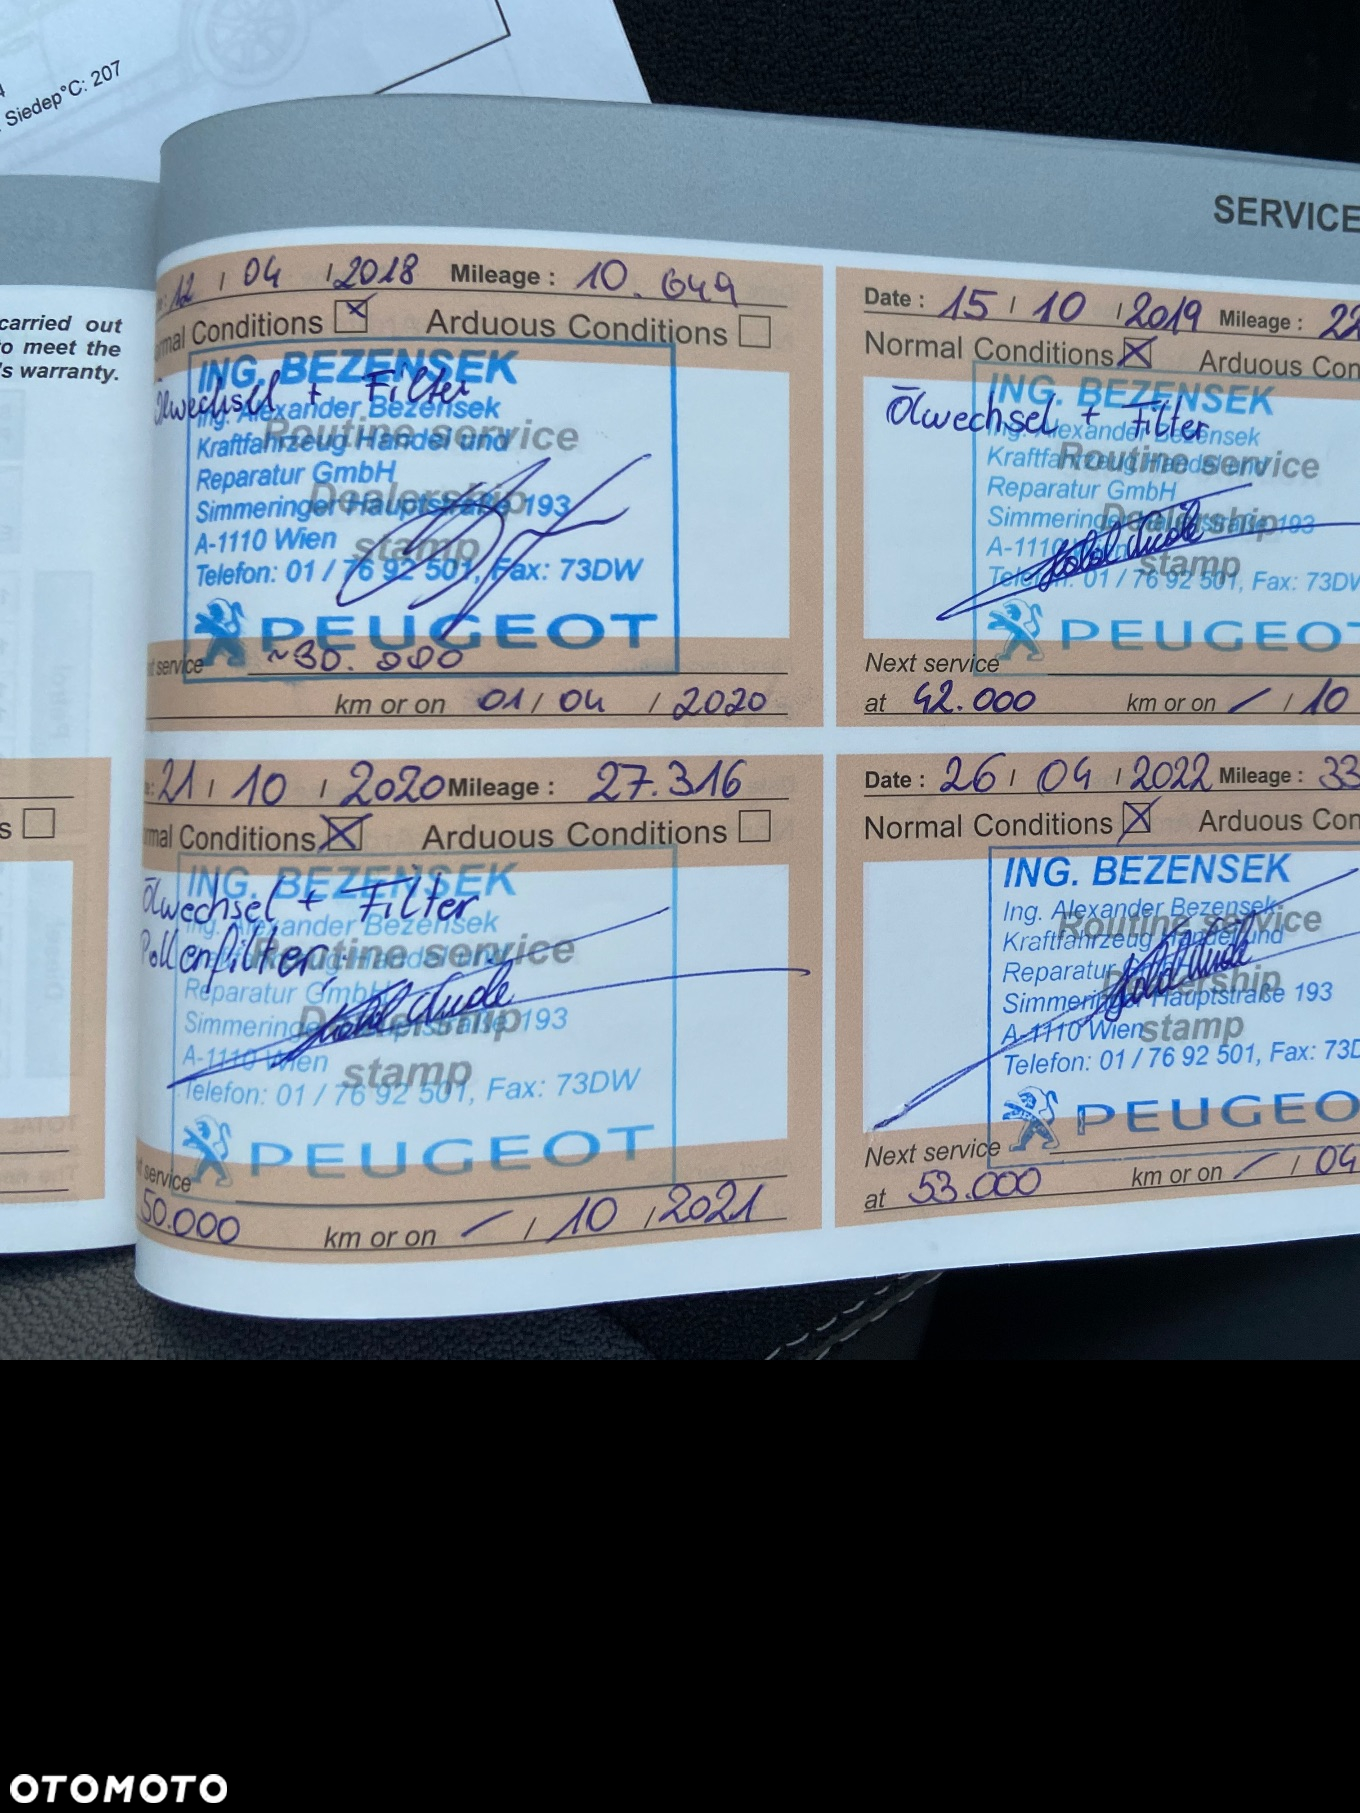 Siedep°C: 207
SERVICE
carried out
to meet the
's warranty.
12 / 04 / 2018 Mileage : 10.649
Normal Conditions Arduous Conditions
Ölwechsel + Filter
ING. BEZENSEK
Ing. Alexander Bezensek
Kraftfahrzeug Handel und
Reparatur GmbH
Simmeringer Hauptstraße 193
A-1110 Wien
Telefon: 01 / 76 92 501, Fax: 73DW
PEUGEOT
Routine service
Dealership
stamp
service ~30.000
km or on 01 / 04 / 2020
Date : 15 / 10 / 2019 Mileage : 22
Normal Conditions Arduous Con
Ölwechsel + Filter
ING. BEZENSEK
Ing. Alexander Bezensek
Kraftfahrzeug Handel und
Reparatur GmbH
Simmeringer Hauptstraße 193
A-1110 Wien
Telefon: 01 / 76 92 501, Fax: 73DW
PEUGEOT
Routine service
Dealership
stamp
Next service
at 42.000 km or on – / 10
21 / 10 / 2020 Mileage : 27.316
Normal Conditions Arduous Conditions
Ölwechsel + Filter
Pollenfilter
ING. BEZENSEK
Ing. Alexander Bezensek
Kraftfahrzeug Handel und
Reparatur GmbH
Simmeringer Hauptstraße 193
A-1110 Wien
Telefon: 01 / 76 92 501, Fax: 73DW
PEUGEOT
Routine service
Dealership
stamp
service
50.000 km or on – / 10 / 2021
Date : 26 / 04 / 2022 Mileage : 33
Normal Conditions Arduous Con
ING. BEZENSEK
Ing. Alexander Bezensek
Kraftfahrzeug Handel und
Reparatur GmbH
Simmeringer Hauptstraße 193
A-1110 Wien
Telefon: 01 / 76 92 501, Fax: 73D
PEUGEO
Routine service
Dealership
stamp
Next service
at 53.000 km or on – / 04
OTOMOTO